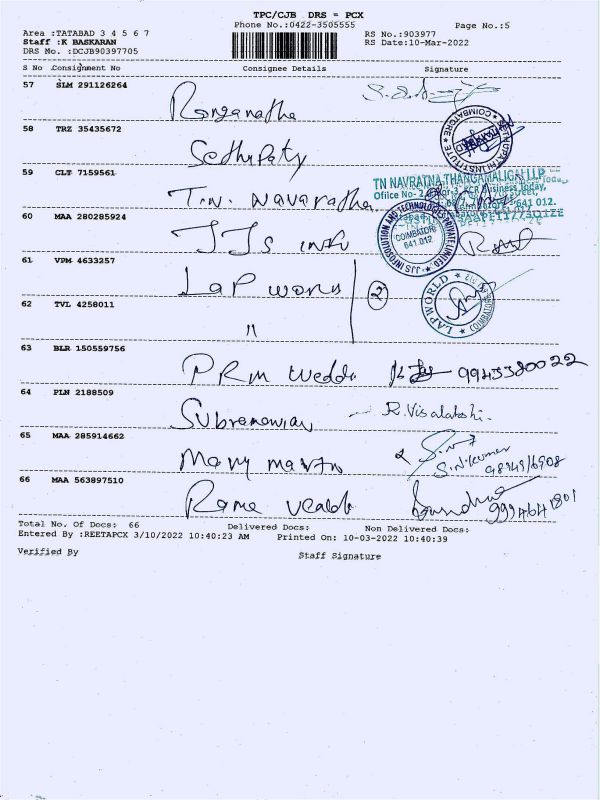 TPC/CJB DRS = PCX
Phone No.:0422-3505555 Page No.:5
Area :TATABAD 3 4 5 6 7 RS No.:903977
Staff :K BASKARAN RS Date:10-Mar-2022
DRS No. :DCJB90397705
S No Consignment No Consignee Details Signature
57 SLM 291126264
Ranganatha
58 TRZ 35435672
Sethupaty
COIMBATORE
59 CLT 7159561
T.N. Navaratha
TN NAVRATNA THANGAMALIGAI LLP
60 MAA 280285924
JJs info
JJS INFOSOLUTION AND TECHNOLOGIES PRIVATE LIMITED
COIMBATORE
641 012
61 VPM 4633257
Lap world
2
LAP WORLD
COIMBATORE
62 TVL 4258011
"
63 BLR 150559756
PRM wedd
64 PLN 2188509
Subramanian R. Visalatshi.
65 MAA 285914662
Mary martn S.N.Kumar
66 MAA 563897510
Rama
Total No. Of Docs: 66 Delivered Docs: Non Delivered Docs:
Entered By :REETAPCX 3/10/2022 10:40:23 AM Printed On: 10-03-2022 10:40:39
Verified By Staff Signature